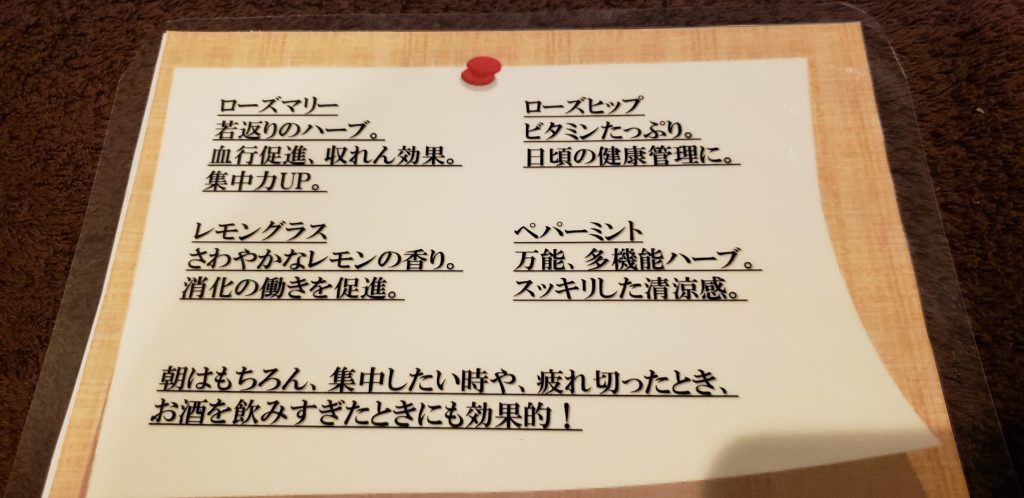 ローズマリー
若返りのハーブ。
血行促進、収れん効果。
集中力UP。
ローズヒップ
ビタミンたっぷり。
日頃の健康管理に。
レモングラス
さわやかなレモンの香り。
消化の働きを促進。
ペパーミント
万能、多機能ハーブ。
スッキリした清涼感。
朝はもちろん、集中したい時や、疲れ切ったとき、
お酒を飲みすぎたときにも効果的！